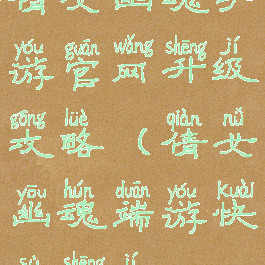 倩女幽魂手
yóu guān wǎng shēng jí
游官网升级
gōng lüè qiàn nǚ
攻略(倩女
yōu hún duān yóu kuài
幽魂端游快
sù shēng jí